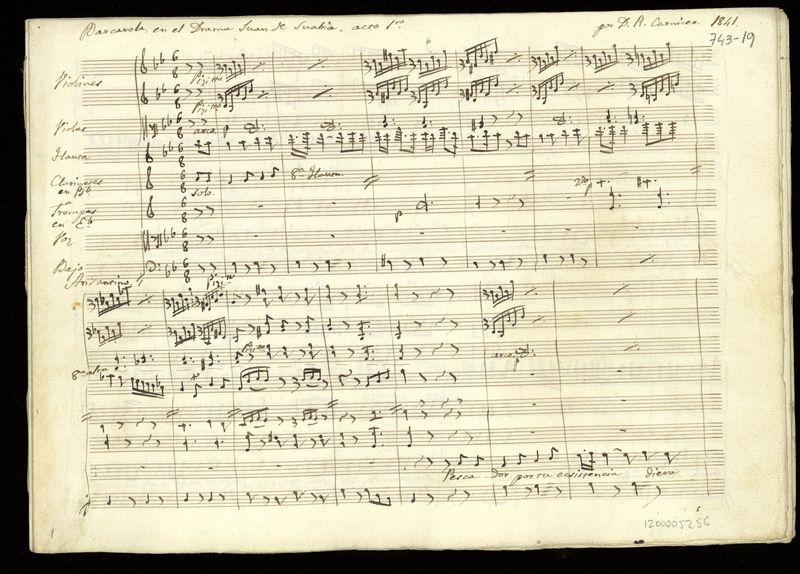 Barcarola, en el Drama Juan de Suabia, acto 1ro por D. R. Carnicer. 1841.
743-19
Violines
Pizi.to
Pizi.to
Violas arco. p
Flauta
Clarinetes en Bb Solo. 8va Flauta.
Trompas en Eb p
Voz
Bajo
Andantino
Pizi.to
Pizi.to
8va alta arco. p
Pesca dor por tu ecsistencia diera
1200005256